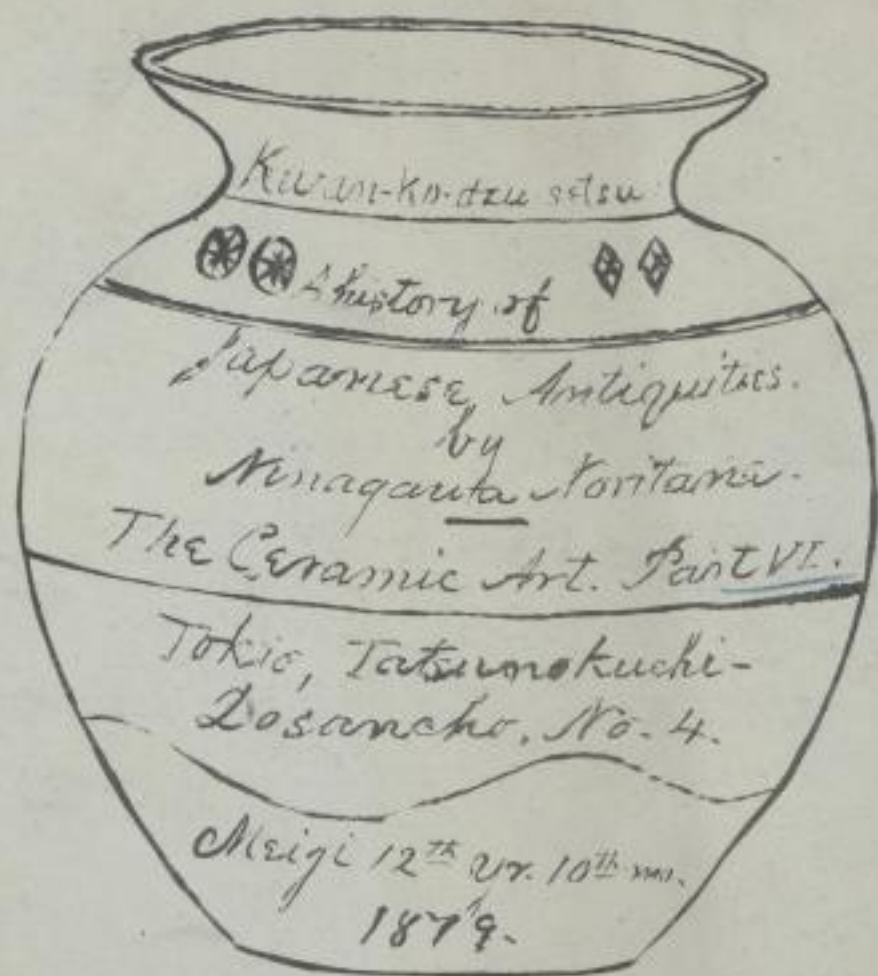 Kwan-ko-dzu setsu
A history of
Japanese Antiquities.
by
Ninagawa Noritane.
The Ceramic Art. Part VI.
Tokio, Tatsunokuchi-
Dosancho, No. 4.
Meigi 12th yr. 10th mo.
1879.